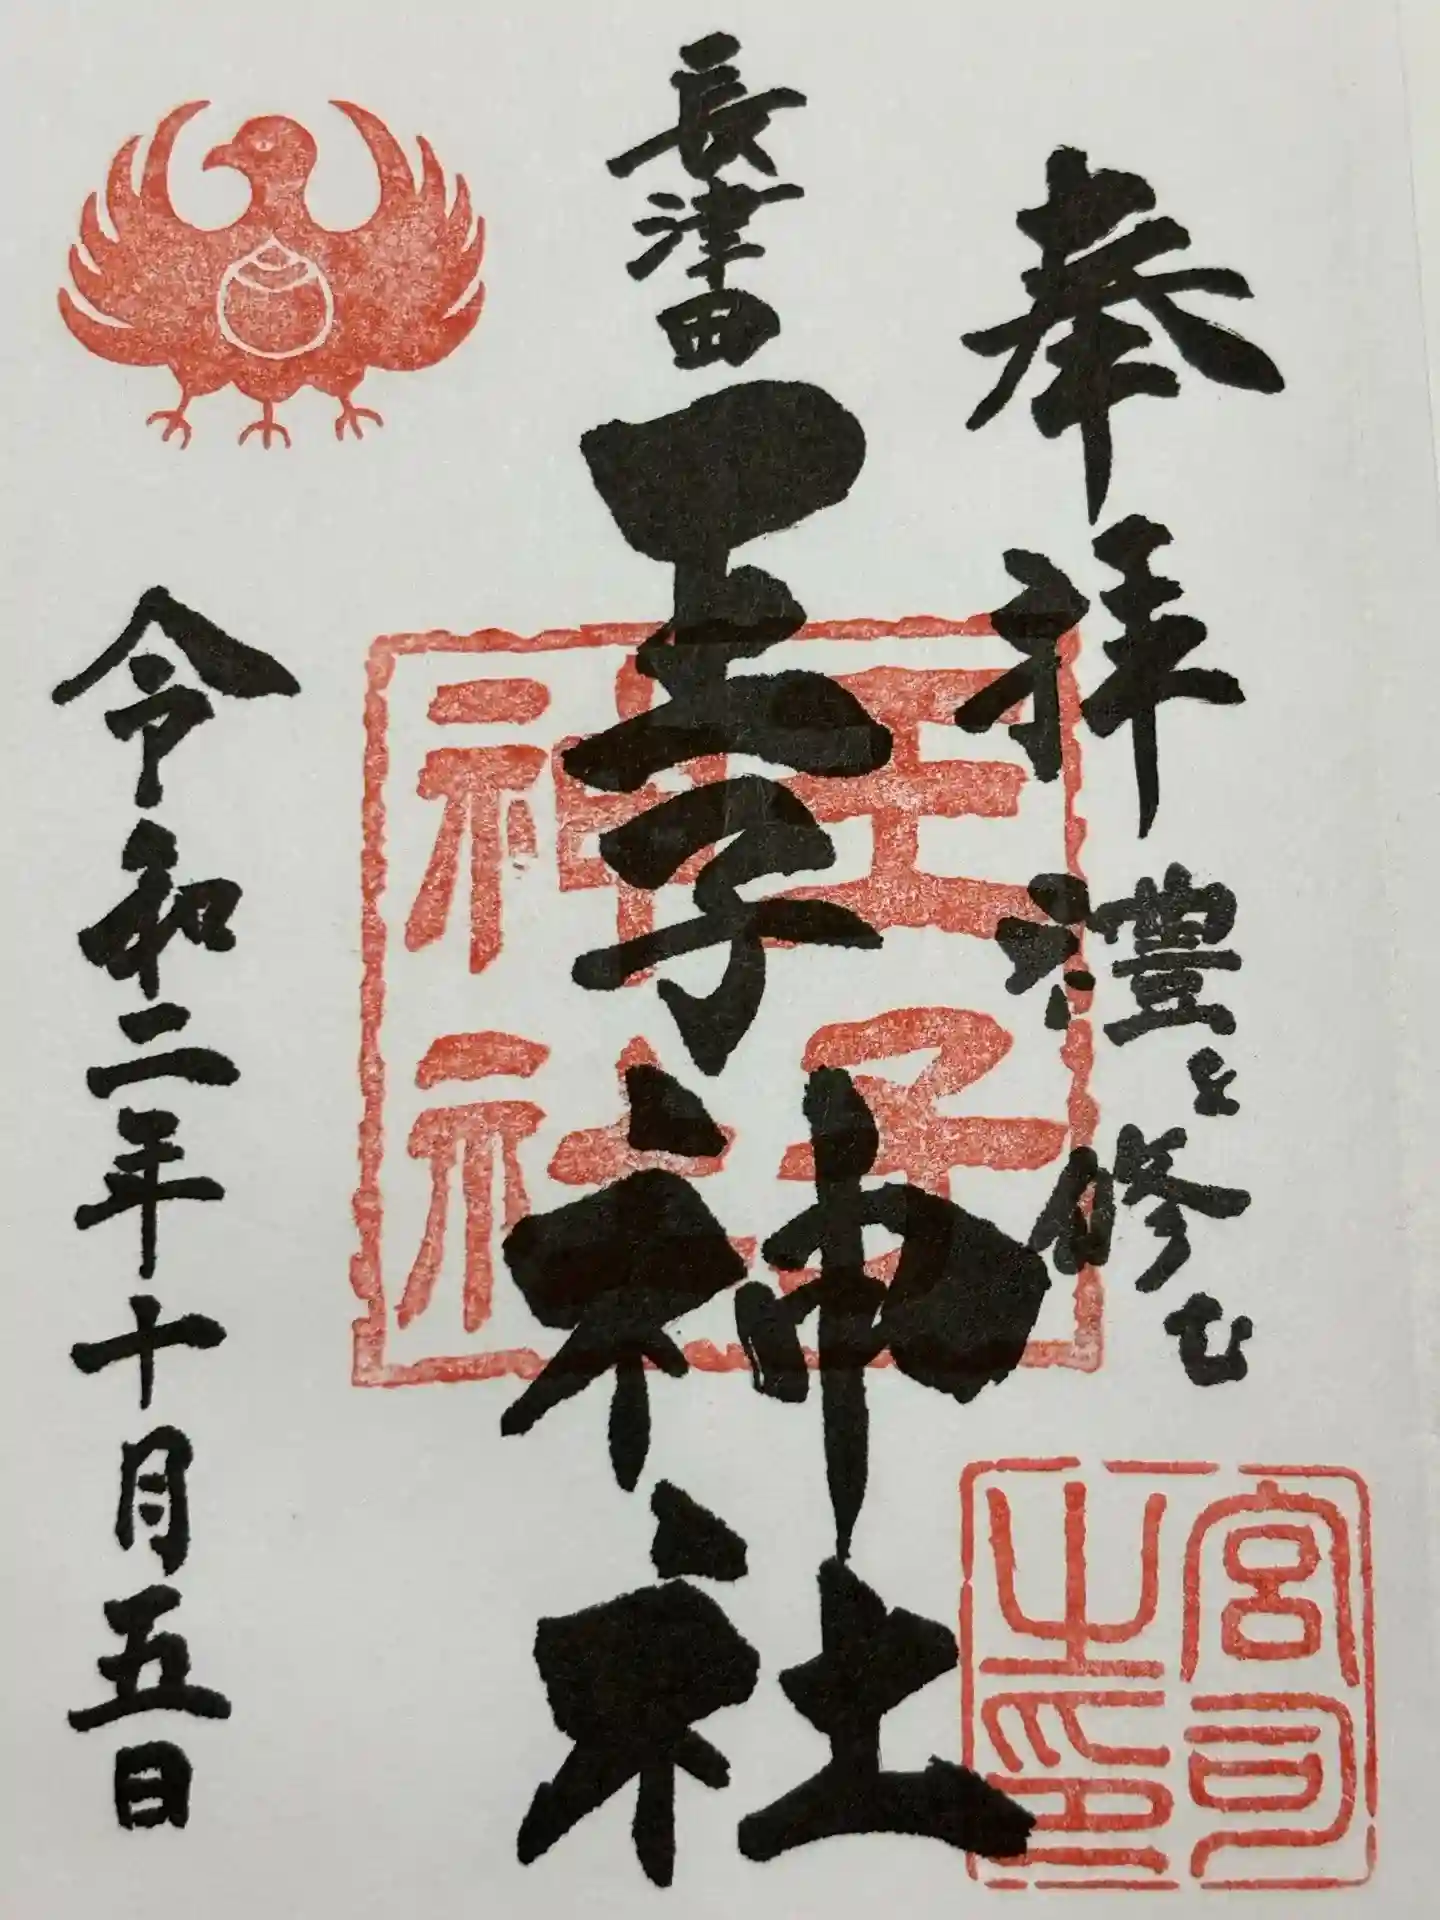 奉拝 禮を修む
長津田
王子神社
令和二年十月五日
王子
神社
宮司
之印